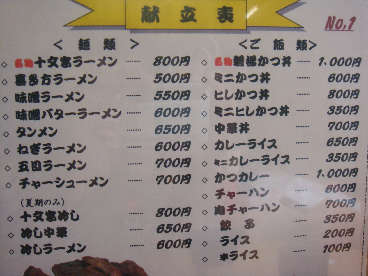 献立表
No.1
<麺類>
名物 十文字ラーメン …… 800円
喜多方ラーメン …… 500円
味噌ラーメン …… 550円
味噌バターラーメン …… 600円
タンメン …… 650円
ねぎラーメン …… 600円
五目ラーメン …… 700円
チャーシューメン …… 700円
(夏期のみ)
十文字冷し …… 800円
冷し中華 …… 650円
冷しラーメン …… 600円
<ご飯類>
名物 かつ丼 …… 1,000円
ミニかつ丼 …… 600円
ヒレかつ丼 …… 800円
ミニヒレかつ丼 …… 350円
中華丼 …… 700円
カレーライス …… 650円
ミニカレーライス …… 350円
かつカレー …… 1,000円
チャーハン …… 600円
チャーハン …… 700円
餃子 …… 350円
ライス …… 200円
半ライス …… 100円